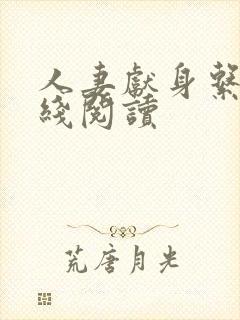 人妻獻身繫
綫閱讀
荒唐月光